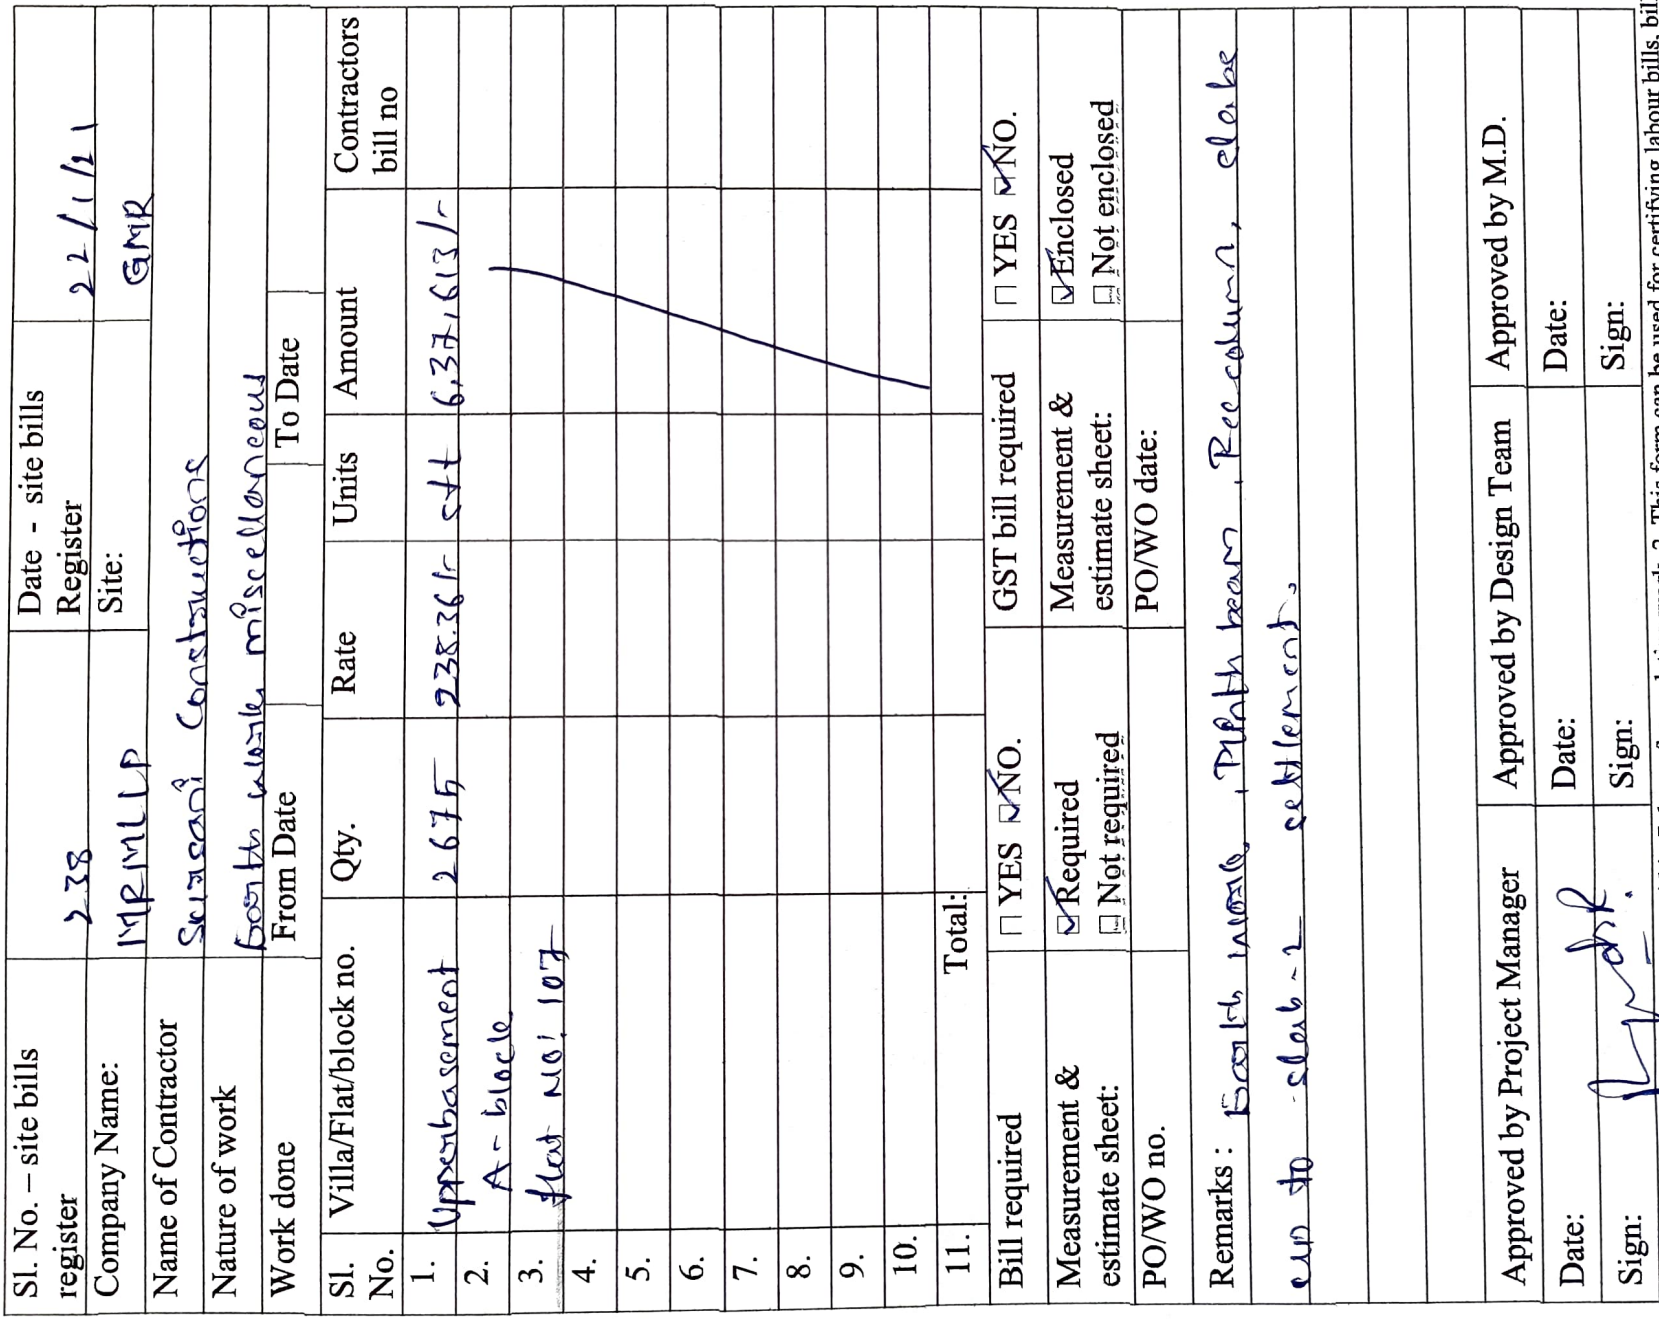 Sl. No. – site bills register 238 Date - site bills Register 22/1/21
Company Name: MRMLLP Site: GMR
Name of Contractor Sairasani Constructions
Nature of work Earth work, miscellaneous
Work done From Date To Date
Sl. No. Villa/Flat/block no. Qty. Rate Units Amount Contractors bill no
1. Upperbasement 2675 238.36/- sft 6,37,613/-
2. A-block
3. flat no: 107
4.
5.
6.
7.
8.
9.
10.
11. Total:
Bill required YES NO. GST bill required YES NO.
Measurement & estimate sheet: Required Not required Measurement & estimate sheet: Enclosed Not enclosed
PO/WO no. PO/WO date:
Remarks : Earth work, Plinth beam, Rcc column, slabs
up to slab-2 settlement.
Approved by Project Manager Approved by Design Team Approved by M.D.
Date: Date: Date:
Sign: Sign: Sign:
This form can be used for certifying labour bills,